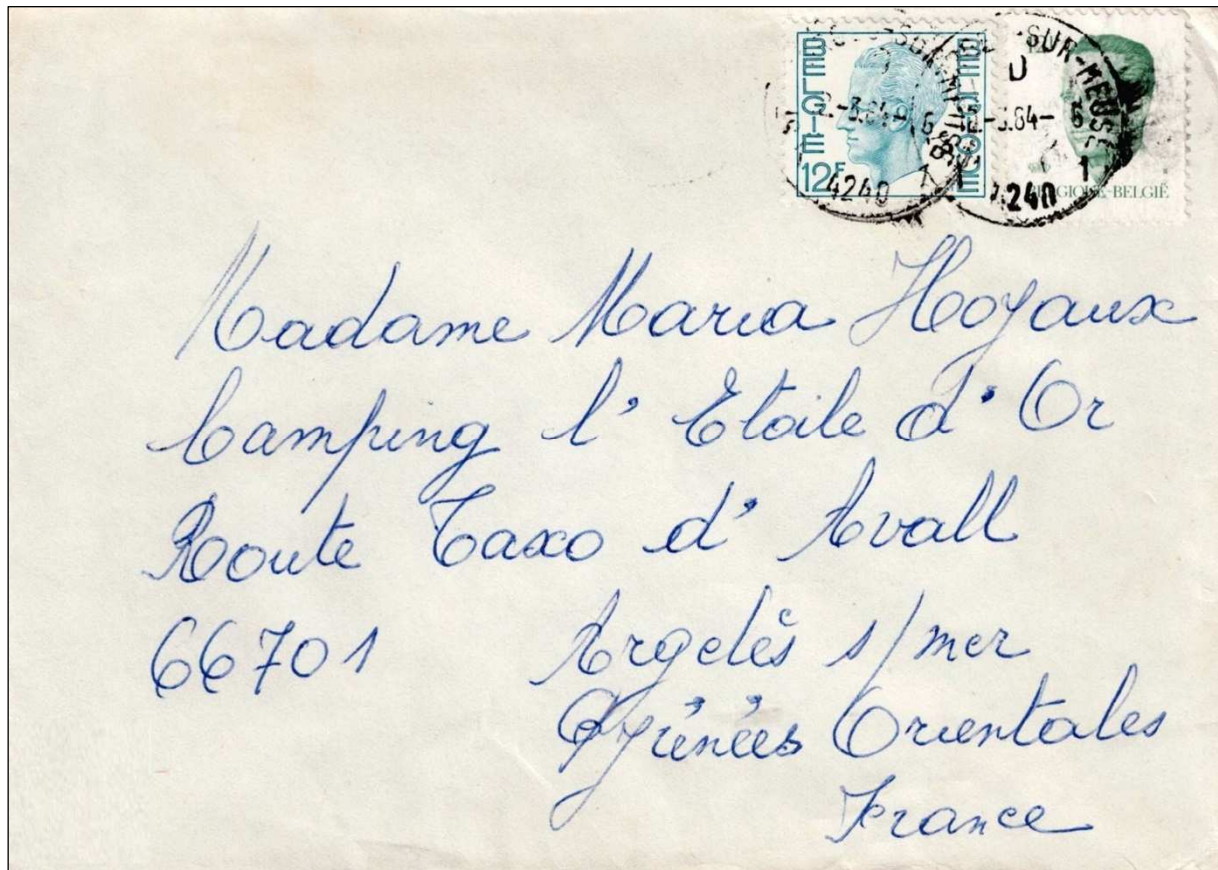 BELGIE BELGIQUE
12F
-SUR-MEUSE
-3.84- 6
4240 1
-SUR-MEUSE
D
2-3.84- 6
4240 1
BELGIQUE-BELGIË
Madame Maria Hoyaux
Camping l' Etoile d' Or
Route Taxo d' Avall
66701 Argelès s/mer
Pyrénées Orientales
France